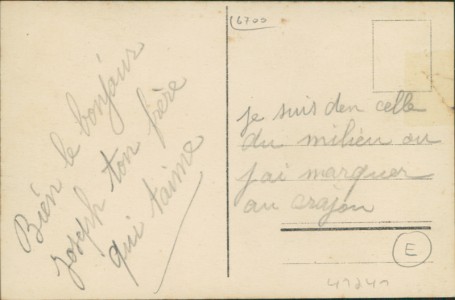 6700
Bién le bonjour
Joseph ton frère
qui t'aime
je suis den celle
du milieu ou
j'ai marquer
au crajon
E
41241